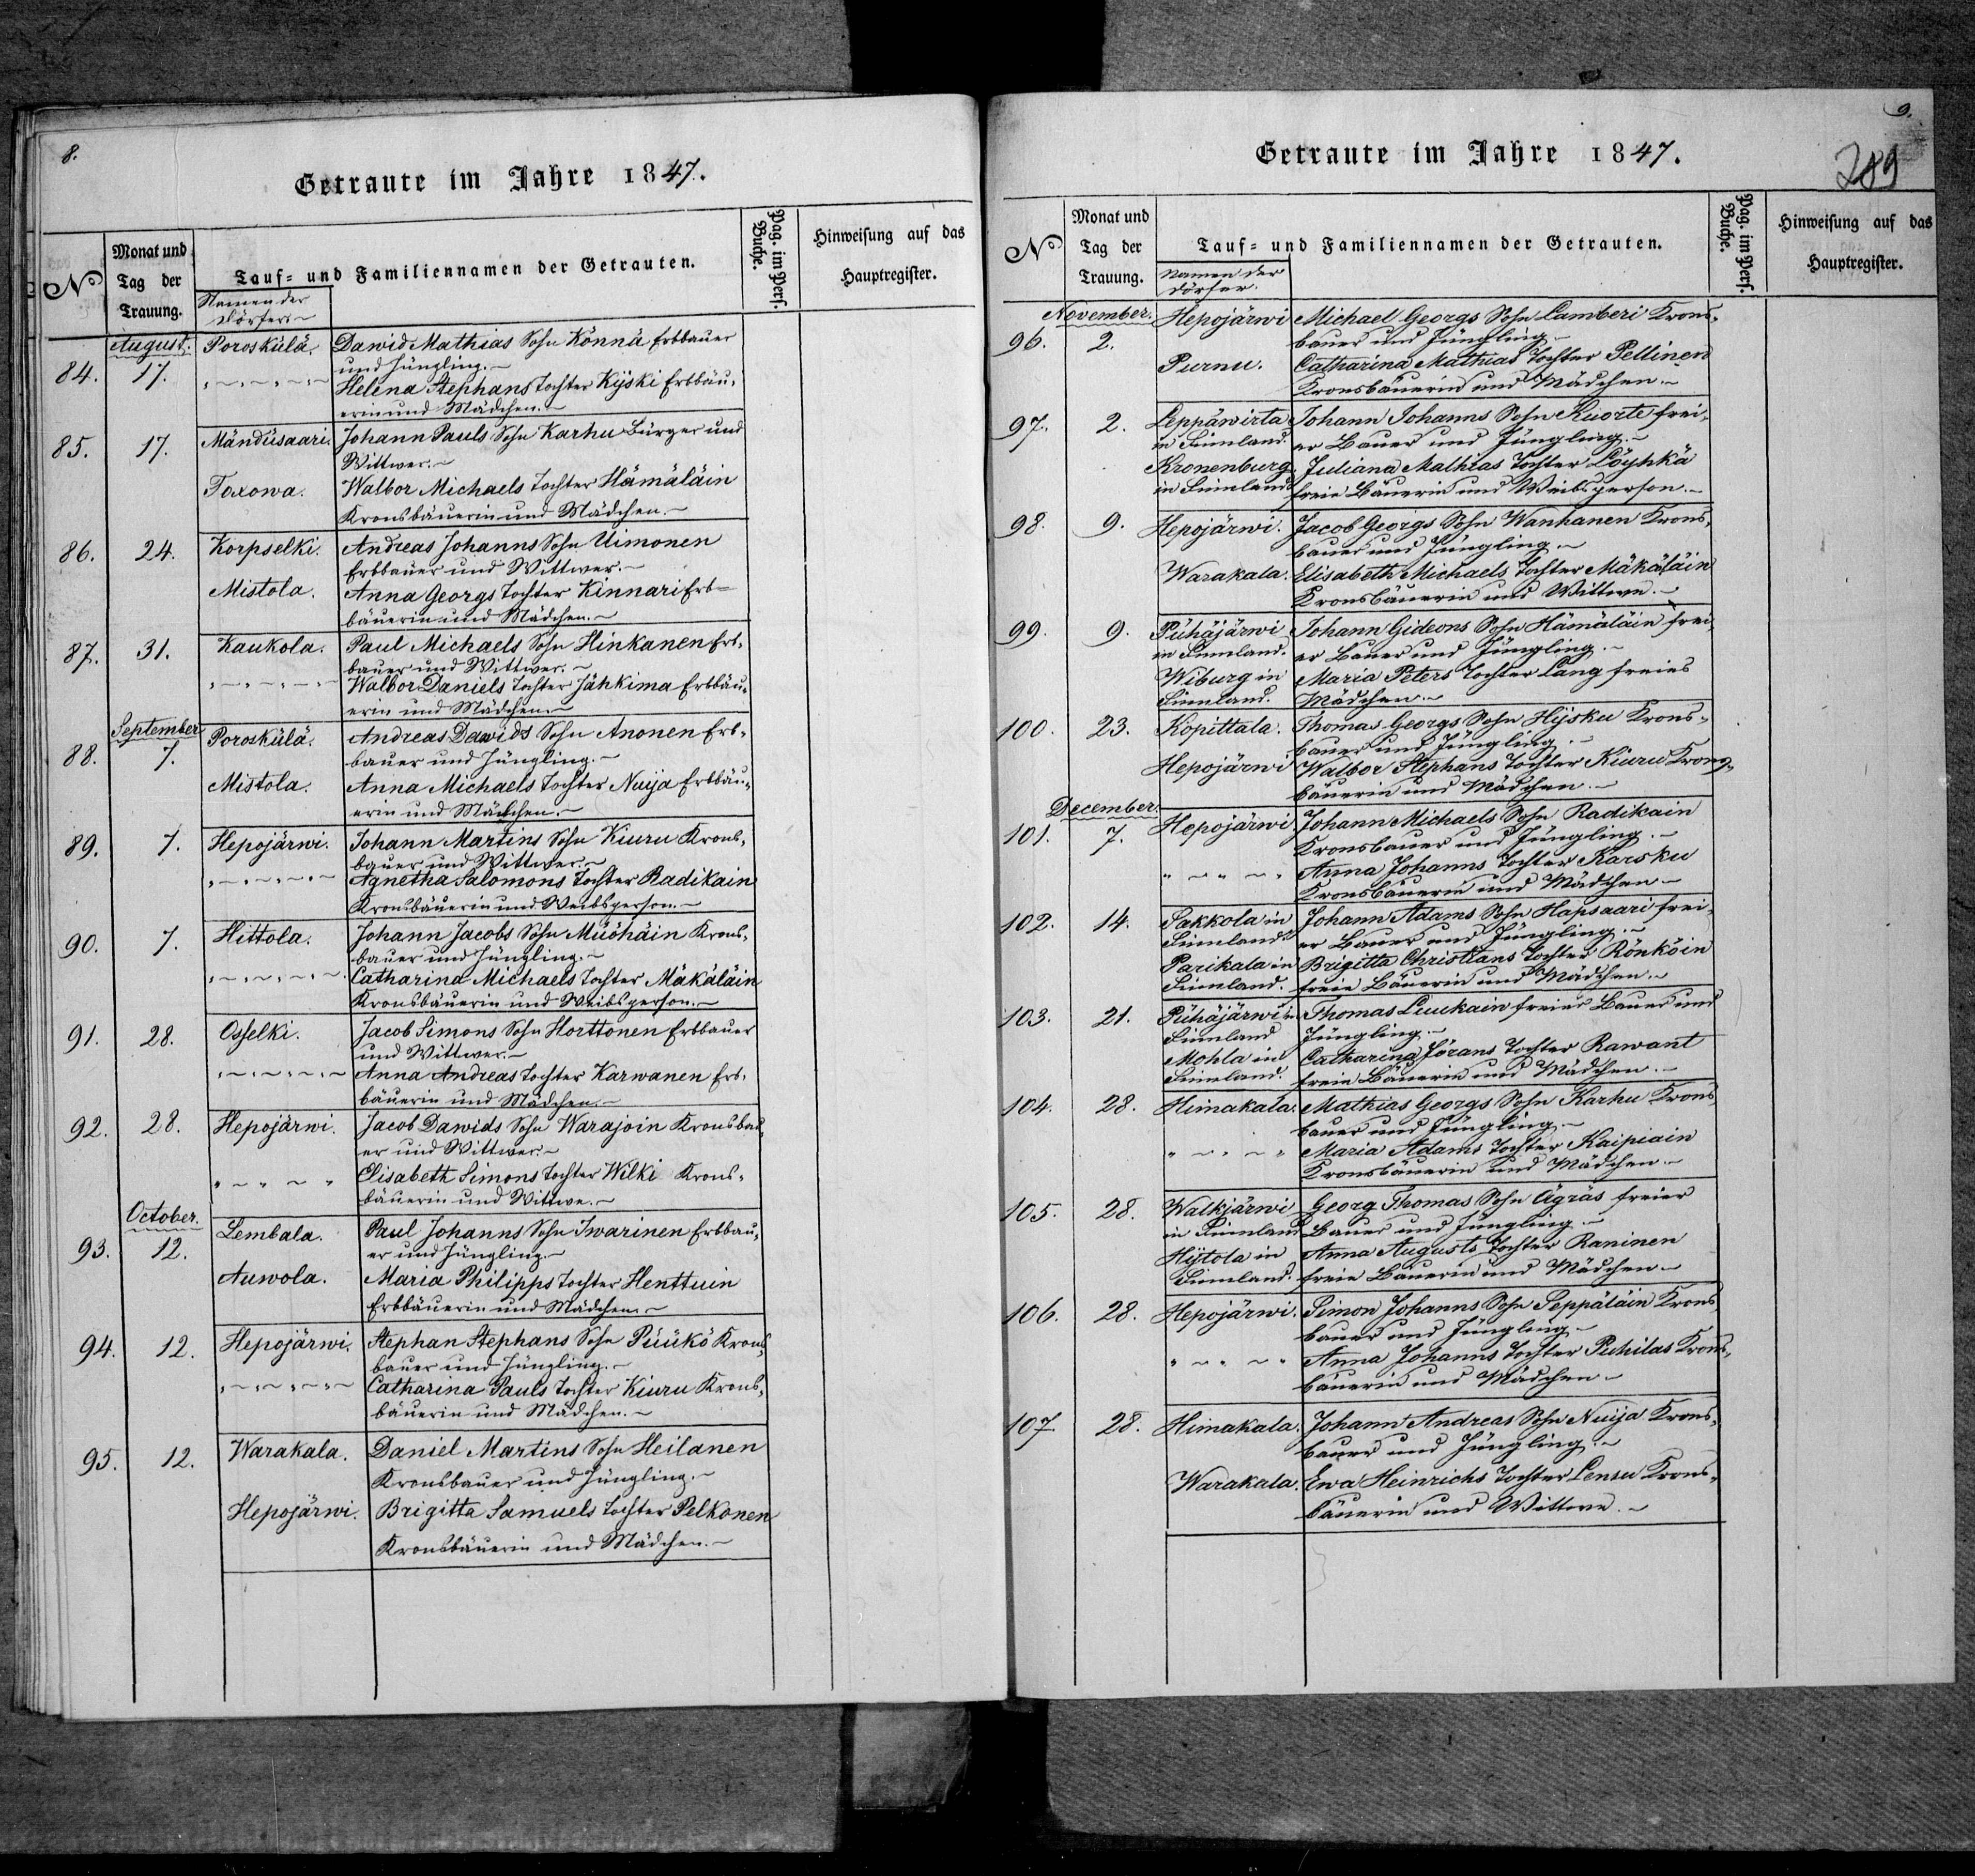 8.
Getraute im Jahre 1847.
No
Monat und
Tag der
Trauung.
Tauf- und Familiennamen der Getrauten.
Namen der
Dörfer.
Pag. im Pers.
Buche.
Hinweisung auf das
Hauptregister.
August.
84. 17. Poroskülä. Dawid Mathias Sohn Könnä Erbbauer
und Jüngling.
Helena Stephans Tochter Kijski Erbbäu-
erin und Mädchen.
85. 17. Mändüsaari. Johann Pauls Sohn Karhu Bürger und
Wittwer.
Toxowa. Walbor Michaels Tochter Hämäläin
Kronsbäuerin und Mädchen.
86. 24. Korpselki. Andreas Johanns Sohn Uimonen
Erbbauer und Wittwer.
Mistola. Anna Georgs Tochter Kinnari Erb-
bäuerin und Mädchen.
87. 31. Kaukola. Paul Michaels Sohn Hinkanen Erb-
bauer und Wittwer.
Walbor Daniels Tochter Jähkimä Erbbäu-
erin und Mädchen.
September
88. 7. Poroskülä. Andreas Dawids Sohn Anonen Erb-
bauer und Jüngling.
Mistola. Anna Michaels Tochter Nuija Erbbäu-
erin und Mädchen.
89. 7. Hepojärwi. Johann Martins Sohn Kiuru Krons-
bauer und Wittwer.
Agnetha Salomons Tochter Radikain
Kronsbäuerin und Weibsperson.
90. 7. Hittola. Johann Jacobs Sohn Müöhäin Krons-
bauer und Jüngling.
Catharina Michaels Tochter Mäkäläin
Kronsbäuerin und Weibsperson.
91. 28. Osselki. Jacob Simons Sohn Horttonen Erbbauer
und Wittwer.
Anna Andreas Tochter Karwanen Erb-
bäuerin und Mädchen.
92. 28. Hepojärwi. Jacob Dawids Sohn Warajoin Kronsbau-
er und Wittwer.
Elisabeth Simons Tochter Wilki Krons-
bäuerin und Wittwe.
October.
93. 12. Lembala. Paul Johanns Sohn Iwarinen Erbbau-
er und Jüngling.
Auwola. Maria Philipps Tochter Henttuin
Erbbäuerin und Mädchen.
94. 12. Hepojärwi. Stephan Stephans Sohn Püükö Krons-
bauer und Jüngling.
Catharina Pauls Tochter Kiuru Krons-
bäuerin und Mädchen.
95. 12. Warakala. Daniel Martins Sohn Heilanen
Kronsbauer und Jüngling.
Hepojärwi. Brigitta Samuels Tochter Pelkonen
Kronsbäuerin und Mädchen.
9.
289
Getraute im Jahre 1847.
No
Monat und
Tag der
Trauung.
Tauf- und Familiennamen der Getrauten.
Namen der
Dörfer.
Pag. im Pers.
Buche.
Hinweisung auf das
Hauptregister.
November.
96. 2. Hepojärwi Michael Georgs Sohn Lamberi Krons-
bauer und Jüngling
Purnu. Catharina Mathias Tochter Pellinen
Kronsbäuerin und Mädchen.
97. 2. Leppäwirta Johann Johanns Sohn Kuorte frei-
in Finnland. er Bauer und Jüngling.
Kronenburg Juliana Mathias Tochter Löyhkä
in Finnland freie Bäuerin und Weibsperson.
98. 9. Hepojärwi. Jacob Georgs Sohn Wanhanen Krons-
bauer und Jüngling.
Warakala. Elisabeth Michaels Tochter Mäkäläin
Kronsbäuerin und Wittwe.
99. 9. Pühäjärwi Johann Gideons Sohn Hämäläin frei-
in Finnland. er Bauer und Jüngling.
Wiburg in Maria Peters Tochter Lang freies
Finnland. Mädchen.
100. 23. Kopittala. Thomas Georgs Sohn Hijsku Krons-
bauer und Jüngling.
Hepojärwi Walbor Stephans Tochter Kiuru Krons-
bäuerin und Mädchen.
December.
101. 7. Hepojärwi Johann Michaels Sohn Radikain
Kronsbauer und Jüngling.
Anna Johanns Tochter Karsku
Kronsbäuerin und Mädchen
102. 14. Sakkola in Johann Adams Sohn Hapsaari frei-
Finnland. er Bauer und Jüngling.
Parikala in Brigitta Christians Tochter Rönköin
Finnland. freie Bäuerin und Mädchen.
103. 21. Pühäjärwi in Thomas Luukain freier Bauer und
Finnland Jüngling
Mohla in Catharina Jörans Tochter Rawant
Finnland. freie Bäuerin und Mädchen.
104. 28. Himakala. Mathias Georgs Sohn Karhu Krons-
bauer und Jüngling
Maria Adams Tochter Kaipiain
Kronsbäuerin und Mädchen
105. 28. Walkjärwi Georg Thomas Sohn Ägräs freier
in Finnland Bauer und Jüngling
Hijtola in Anna Augusts Tochter Raninen
Finnland. freie Bäuerin und Mädchen
106. 28. Hepojärwi. Simon Johanns Sohn Seppäläin Krons-
bauer und Jüngling
Anna Johanns Tochter Puhilas Krons-
bäuerin und Mädchen
107 28. Himakala. Johann Andreas Sohn Nuija Krons-
bauer und Jüngling
Warakala. Ewa Heinrichs Tochter Lensu Krons-
bäuerin und Wittwe.